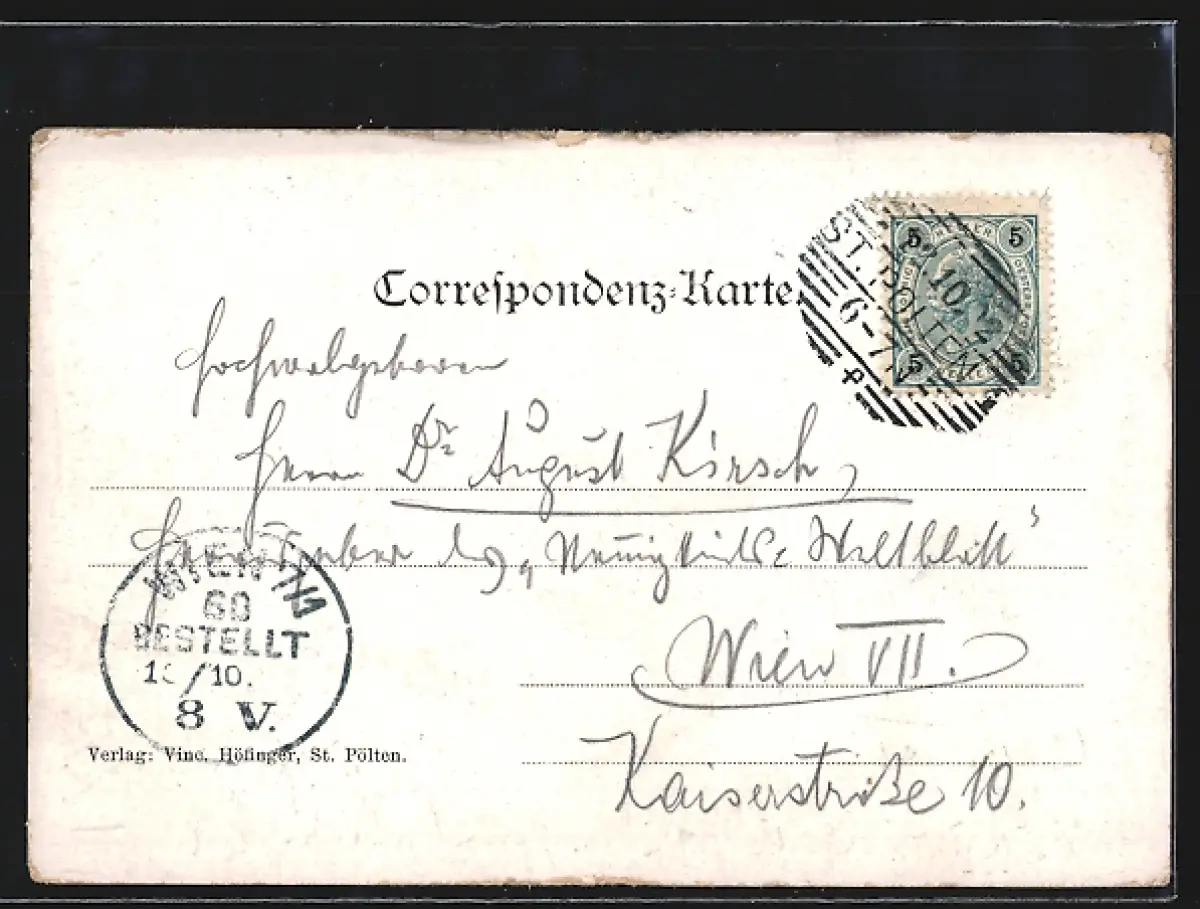 Correſpondenz-Karte.
5 HELLER 5
5 5
ST. PÖLTEN
10
6-7
Hochwolgeboren
Herrn Dr August Kirsch,
Herausgeber des „Neuigkeits-Weltblatt"
Wien VII.
Kaiserstraße 10.
WIEN 7/1
60
BESTELLT
/10.
8 V.
Verlag: Vinc. Höfinger, St. Pölten.